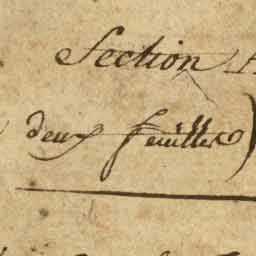 Section
deux feuilles)